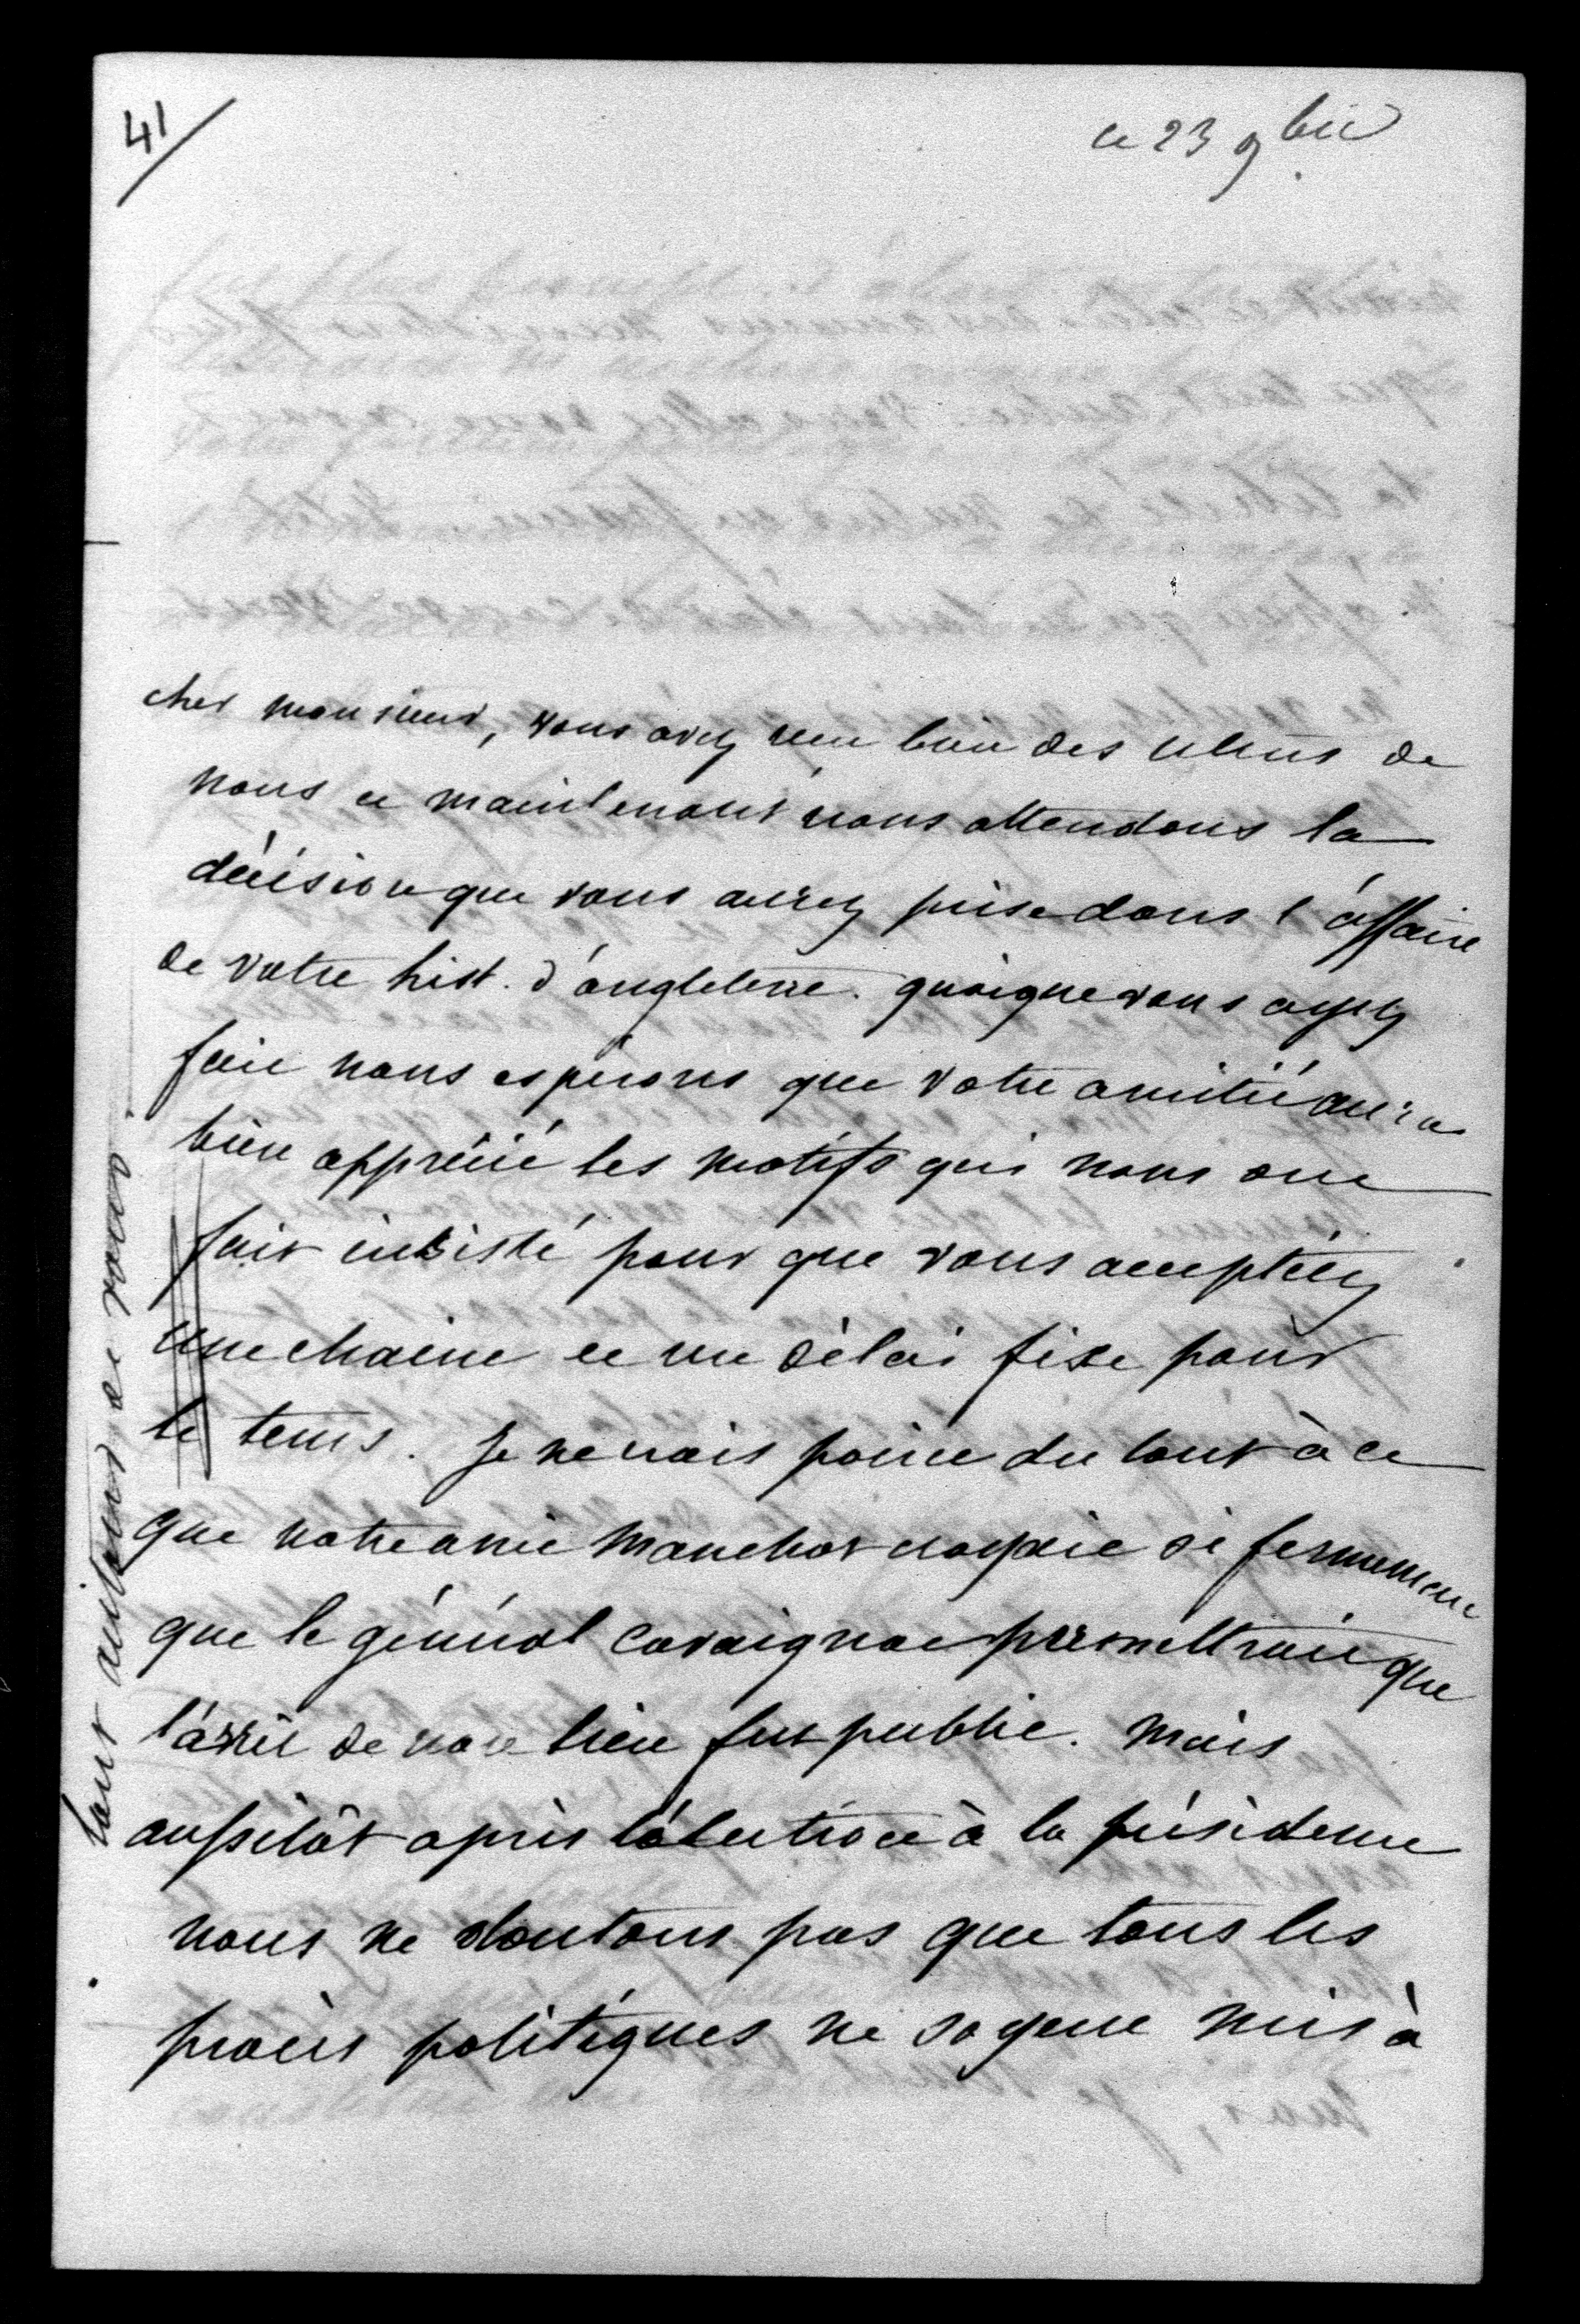 41
ce 23 9bre
cher monsieur, vous avez reçu bien des lettres de
nous et maintenant nous attendons la
décision que vous aurez prise dans l'affaire
de votre hist. d'angleterre. quoique vous ayez
fait nous esperons que votre amitié aura
bien apprécié les motifs qui nous ont
fait insisté pour que vous acceptiez
une chaine et un délai fixe pour
le tems. Je ne crois point du tout à ce
que notre ami manchot croyait si fermement
que le général Cavaignac promettrait que
l'arrêt de non lieu fut public. Mais
aussitôt après l'élection à la présidence
nous ne doutons pas que tous les
procès politiques ne soyent mis à
tout autour de vous